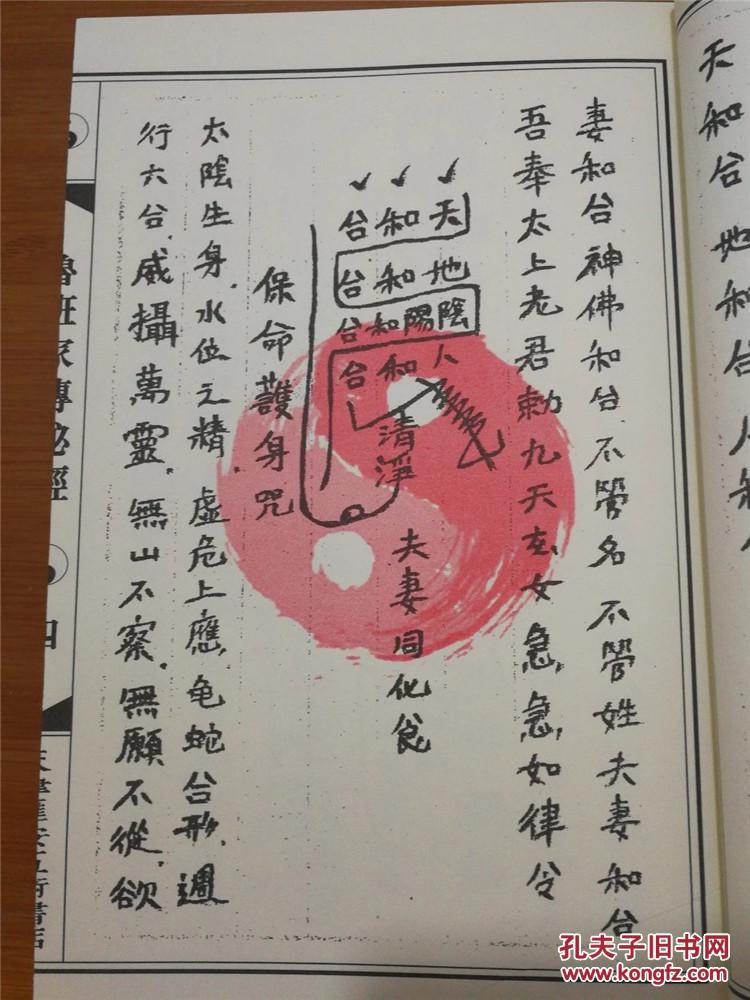 天和合地和合人和
妻和合神佛和合.不管名不管姓夫妻和合
吾奉太上老君勅九天玄女急急如律令
天和合
地和合
陰陽和合
人和合
清淨
夫妻同化食
保命護身咒
太陰生身.水位之精.虛危上應.龟蛇合形.週
行六合.威攝萬靈.無山不察.無願不從.欲
魯班家傳秘經
四
孔夫子旧书网
www.kongfz.com